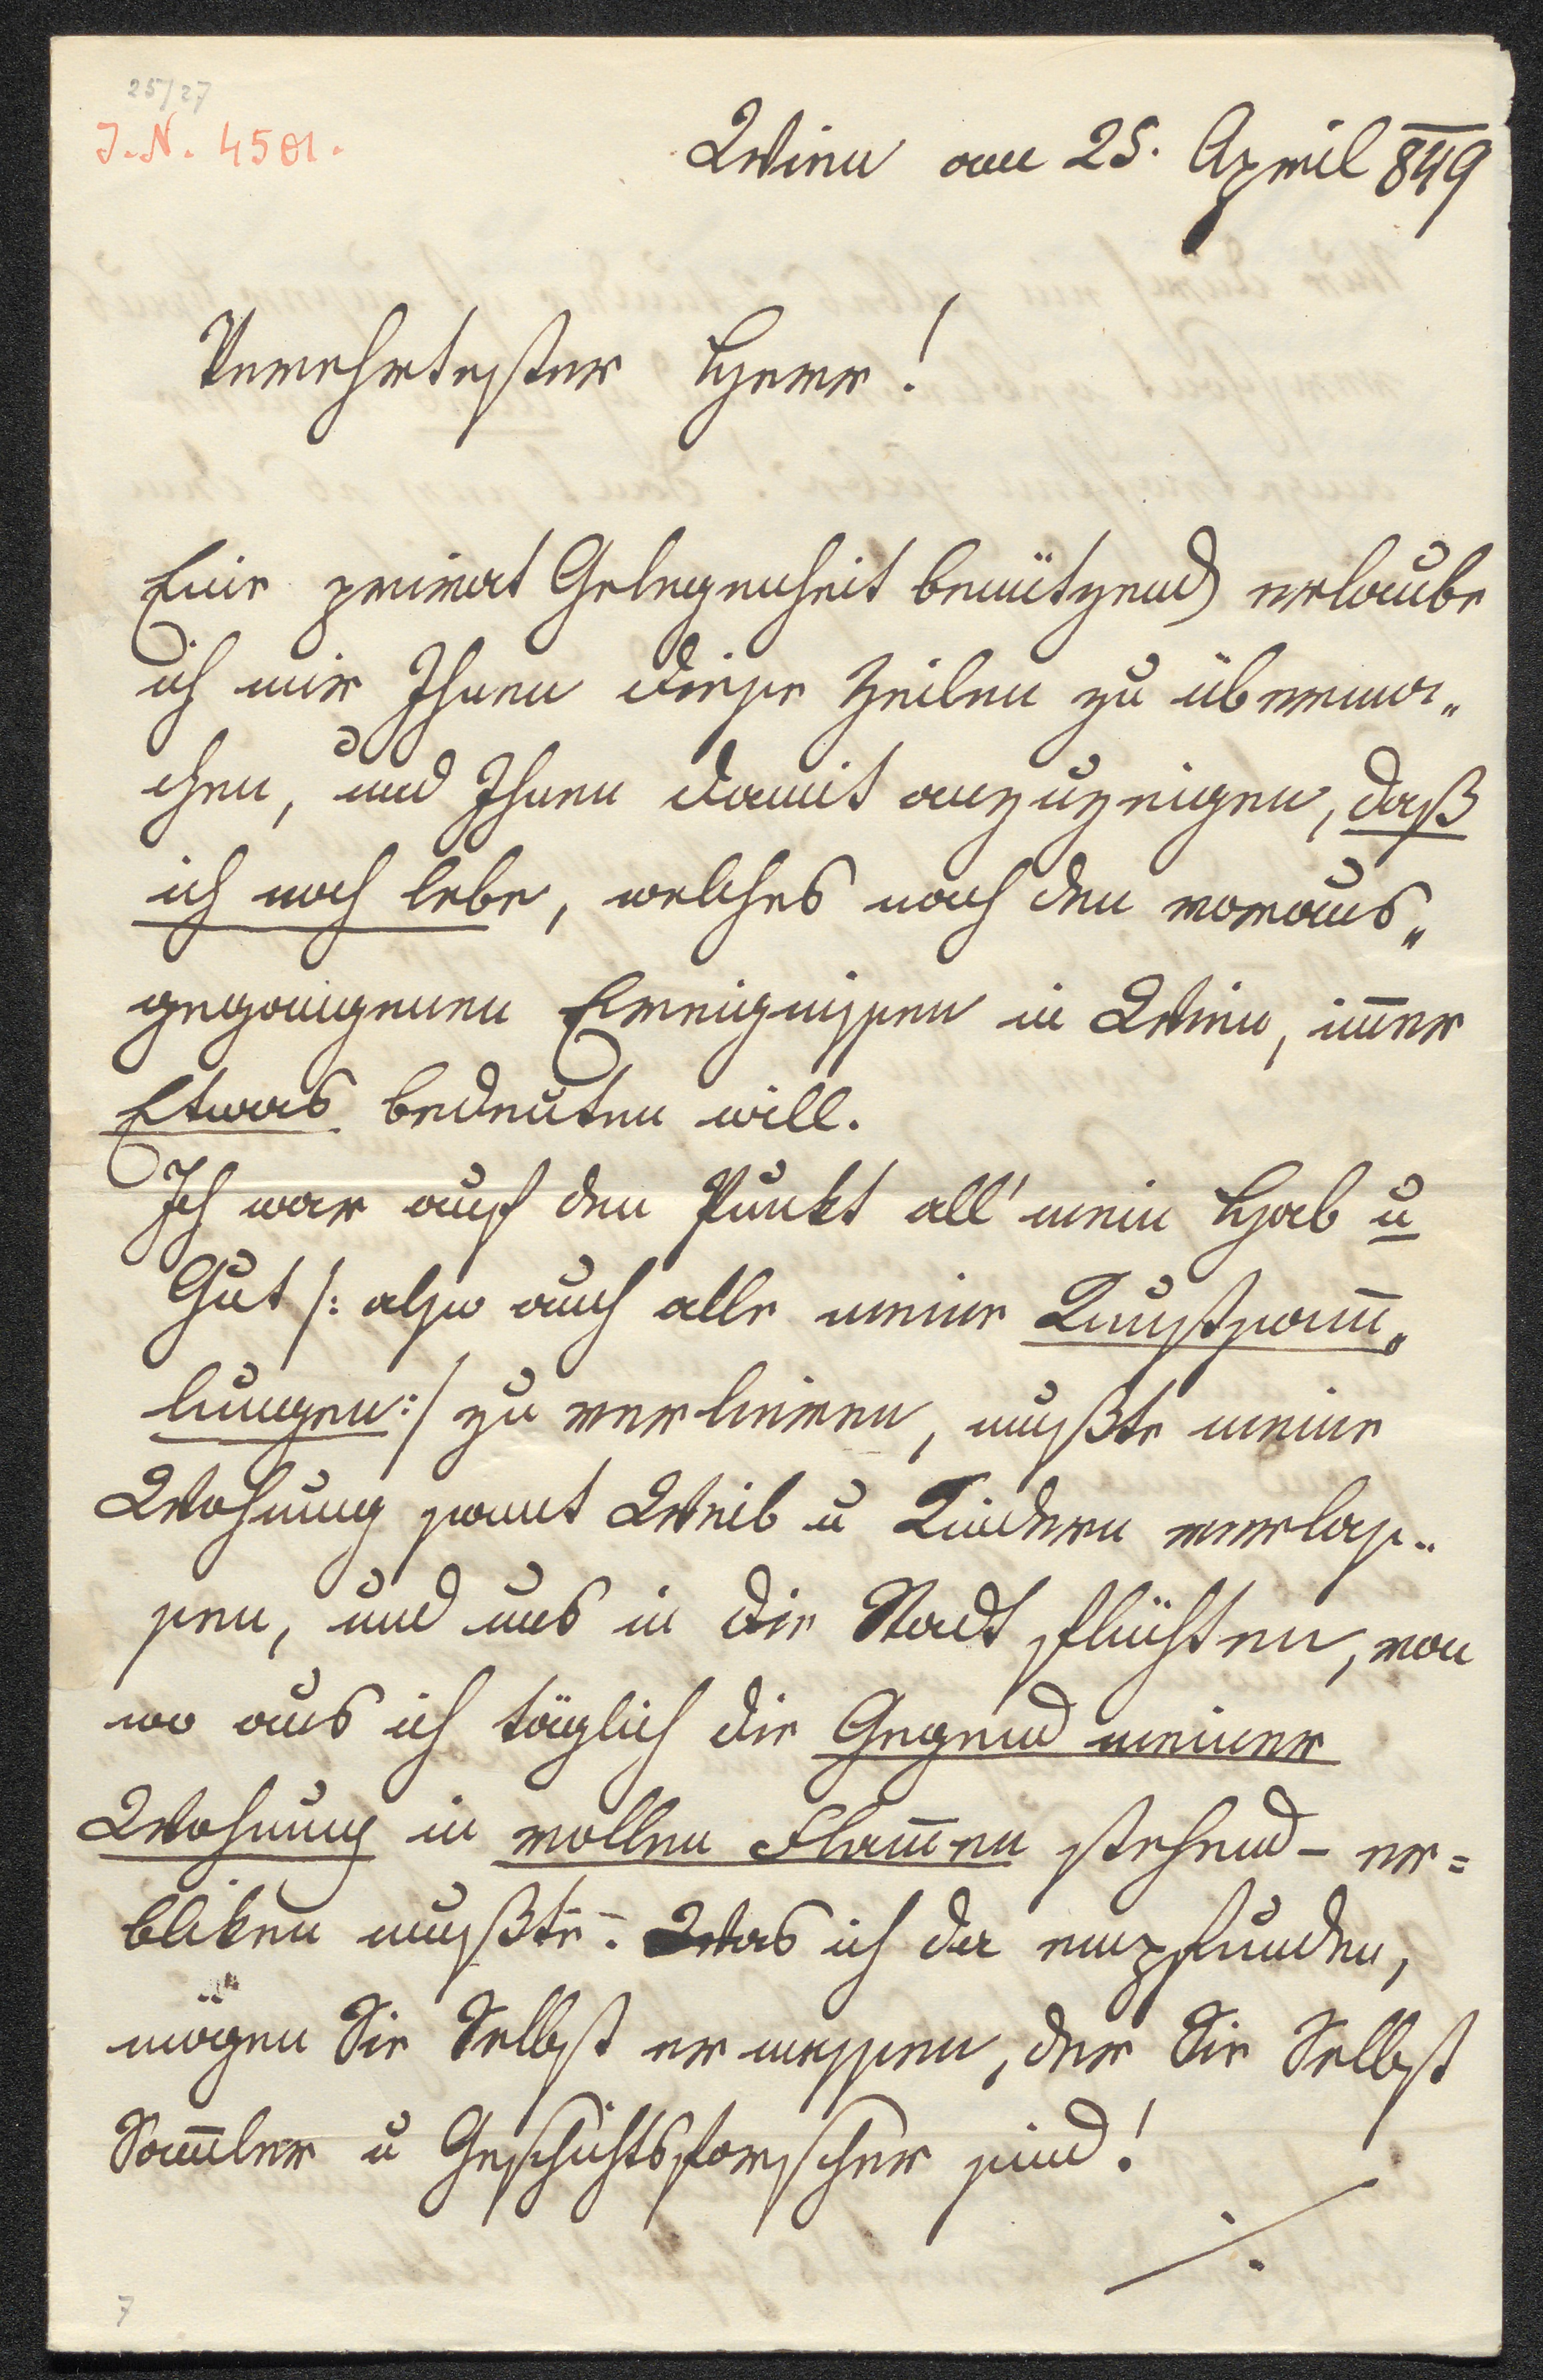 25/27
I.N. 4501.
Wien am 25. April 849
Verehrtester Herr!
Eine privat Gelegenheit benützend erlaube
ich mir Ihnen diese Zeilen zu überma„
chen, und Ihnen damit anzuzeigen, daß
ich noch lebe, welches nach den voraus„
gegangenen Ereignissen in Wien, im̅er
Etwas bedeuten will.
Ich war auf den Punkt all' mein Hab u
Gut /: also auch alle meine Kunstsam̅„
lungen :/ zu verlieren, mußte meine
Wohnung samt Weib u Kindern verlas„
sen, und uns in die Stadt flüchten, von
wo aus ich täglich die Gegend meiner
Wohnung in vollen Flam̅en stehend – er=
bliken mußte. – Was ich da empfunden,
mögen Sie Selbst ermessen, der Sie Selbst
Sam̅ler u Geschichtsforscher sind!
./.
7